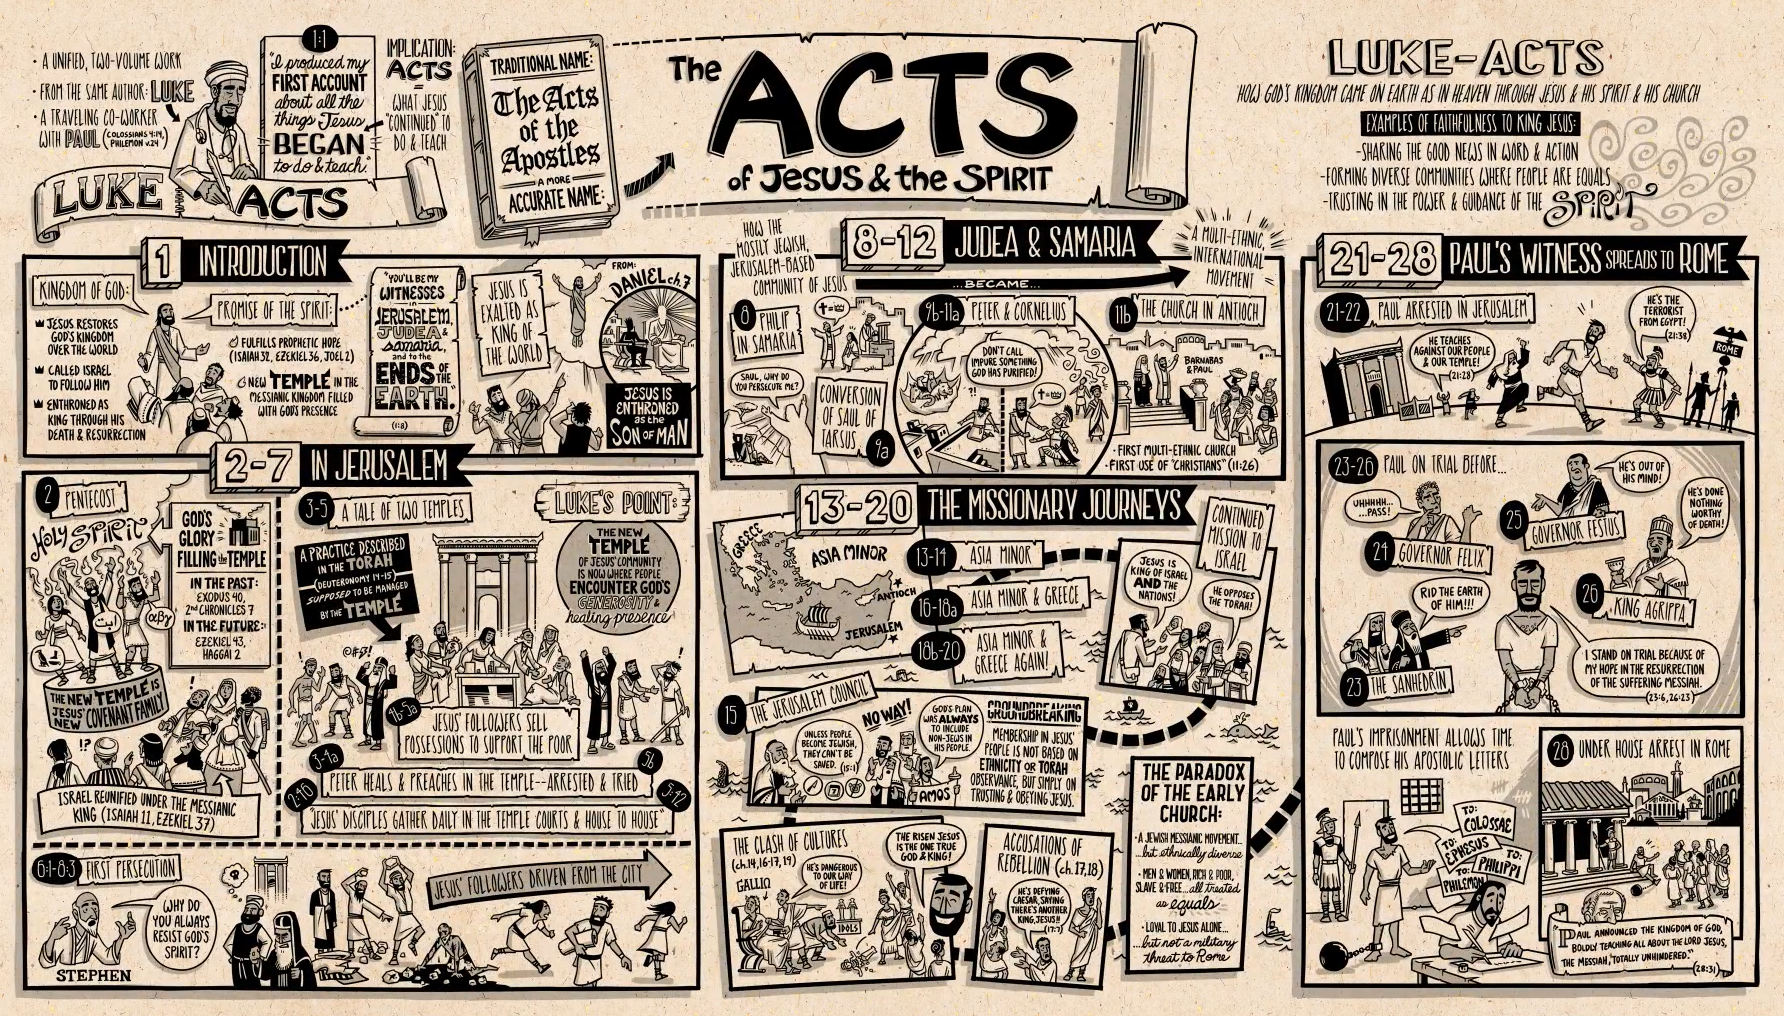 • A UNIFIED, TWO-VOLUME WORK
• FROM THE SAME AUTHOR: LUKE
• A TRAVELING CO-WORKER
WITH PAUL (COLOSSIANS 4:14,
PHILEMON v.24)
LUKE
ACTS
1:1
"I produced my
FIRST ACCOUNT
about all the
things Jesus
BEGAN
to do & teach"
IMPLICATION:
ACTS
=
WHAT JESUS
"CONTINUED" TO
DO & TEACH
TRADITIONAL NAME:
The Acts
of the
Apostles
A MORE
ACCURATE NAME:
The ACTS
of Jesus & the SPIRIT
LUKE-ACTS
HOW GOD'S KINGDOM CAME ON EARTH AS IN HEAVEN THROUGH JESUS & HIS SPIRIT & HIS CHURCH
EXAMPLES OF FAITHFULNESS TO KING JESUS:
-SHARING THE GOOD NEWS IN WORD & ACTION
-FORMING DIVERSE COMMUNITIES WHERE PEOPLE ARE EQUALS
-TRUSTING IN THE POWER & GUIDANCE OF THE SPIRIT
1 INTRODUCTION
KINGDOM OF GOD:
JESUS RESTORES
GOD'S KINGDOM
OVER THE WORLD
CALLED ISRAEL
TO FOLLOW HIM
ENTHRONED AS
KING THROUGH HIS
DEATH & RESURRECTION
PROMISE OF THE SPIRIT:
FULFILLS PROPHETIC HOPE
(ISAIAH 32, EZEKIEL 36, JOEL 2)
NEW TEMPLE IN THE
MESSIANIC KINGDOM FILLED
WITH GOD'S PRESENCE
"YOU'LL BE MY
WITNESSES
in
JERUSALEM,
JUDEA &
samaria,
and to the
ENDS OF THE
EARTH."
(1:8)
JESUS IS
EXALTED AS
KING OF
THE WORLD
FROM:
DANIEL ch.7
JESUS IS
ENTHRONED
as the
SON OF MAN
2-7 IN JERUSALEM
2 PENTECOST
HOLY SPIRIT
αβγ
GOD'S
GLORY
FILLING the TEMPLE
IN THE PAST:
EXODUS 40,
2nd CHRONICLES 7
IN THE FUTURE:
EZEKIEL 43,
HAGGAI 2
THE NEW TEMPLE IS
JESUS' NEW COVENANT FAMILY
!?
ISRAEL REUNIFIED UNDER THE MESSIANIC
KING (ISAIAH 11, EZEKIEL 37)
3-5 A TALE OF TWO TEMPLES
A PRACTICE DESCRIBED
IN THE TORAH
(DEUTERONOMY 14-15)
SUPPOSED TO BE MANAGED
BY THE TEMPLE
@#$!
LUKE'S POINT:
THE NEW
TEMPLE
OF JESUS' COMMUNITY
IS NOW WHERE PEOPLE
ENCOUNTER GOD'S
GENEROSITY &
healing presence
4b-5a
JESUS' FOLLOWERS SELL
POSSESSIONS TO SUPPORT THE POOR
3-4a
PETER HEALS & PREACHES IN THE TEMPLE--ARRESTED & TRIED
5b
2:46
"JESUS' DISCIPLES GATHER DAILY IN THE TEMPLE COURTS & HOUSE TO HOUSE"
5:42
6:1-8:3 FIRST PERSECUTION
WHY DO
YOU ALWAYS
RESIST GOD'S
SPIRIT?
STEPHEN
?
JESUS' FOLLOWERS DRIVEN FROM THE CITY
HOW THE
MOSTLY JEWISH,
JERUSALEM-BASED
COMMUNITY OF JESUS
8-12 JUDEA & SAMARIA
...BECAME...
A MULTI-ETHNIC,
INTERNATIONAL
MOVEMENT
8
PHILIP
IN SAMARIA
SAUL, WHY DO
YOU PERSECUTE ME?
CONVERSION
OF SAUL OF
TARSUS
9a
9b-11a PETER & CORNELIUS
DON'T CALL
IMPURE SOMETHING
GOD HAS PURIFIED!
?!
11b THE CHURCH IN ANTIOCH
BARNABAS
& PAUL
• FIRST MULTI-ETHNIC CHURCH
• FIRST USE OF "CHRISTIANS" (11:26)
13-20 THE MISSIONARY JOURNEYS
GREECE
ASIA MINOR
ANTIOCH
JERUSALEM
13-14 ASIA MINOR
16-18a ASIA MINOR & GREECE
18b-20 ASIA MINOR &
GREECE AGAIN!
CONTINUED
MISSION TO
ISRAEL
JESUS IS
KING OF ISRAEL
AND THE
NATIONS!
HE OPPOSES
THE TORAH!
15 THE JERUSALEM COUNCIL
UNLESS PEOPLE
BECOME JEWISH,
THEY CAN'T BE
SAVED. (15:1)
NO WAY!
GOD'S PLAN
WAS ALWAYS
TO INCLUDE
NON-JEWS IN
HIS PEOPLE.
AMOS
GROUNDBREAKING
MEMBERSHIP IN JESUS'
PEOPLE IS NOT BASED ON
ETHNICITY OR TORAH
OBSERVANCE, BUT SIMPLY ON
TRUSTING & OBEYING JESUS.
THE CLASH OF CULTURES
(ch.14,16-17,19)
GALLIO
HE'S DANGEROUS
TO OUR WAY
OF LIFE!
IDOLS
THE RISEN JESUS
IS THE ONE TRUE
GOD & KING!
ACCUSATIONS OF
REBELLION (ch.17,18)
HE'S DEFYING
CAESAR, SAYING
THERE'S ANOTHER
KING, JESUS!!
(17:7)
THE PARADOX
OF THE EARLY
CHURCH:
• A JEWISH MESSIANIC MOVEMENT...
...but ethnically diverse
• MEN & WOMEN, RICH & POOR,
SLAVE & FREE...all treated
as equals
• LOYAL TO JESUS ALONE...
...but not a military
threat to Rome
21-28 PAUL'S WITNESS SPREADS TO ROME
21-22 PAUL ARRESTED IN JERUSALEM
HE TEACHES
AGAINST OUR PEOPLE
& OUR TEMPLE!
(21:28)
HE'S THE
TERRORIST
FROM EGYPT!
(21:38)
ROME
23-26 PAUL ON TRIAL BEFORE...
UHHHHH...
...PASS!
24 GOVERNOR FELIX
HE'S OUT OF
HIS MIND!
25
GOVERNOR FESTUS
HE'S DONE
NOTHING
WORTHY
OF DEATH!
26
KING AGRIPPA
RID THE EARTH
OF HIM!!!
23 THE SANHEDRIN
I STAND ON TRIAL BECAUSE OF
MY HOPE IN THE RESURRECTION
OF THE SUFFERING MESSIAH.
(23:6, 26:23)
PAUL'S IMPRISONMENT ALLOWS TIME
TO COMPOSE HIS APOSTOLIC LETTERS
TO:
COLOSSAE
TO:
EPHESUS
TO:
PHILIPPI
TO:
PHILEMON
28 UNDER HOUSE ARREST IN ROME
PAUL ANNOUNCED THE KINGDOM OF GOD,
BOLDLY TEACHING ALL ABOUT THE LORD JESUS,
THE MESSIAH, "TOTALLY UNHINDERED."
(28:31)